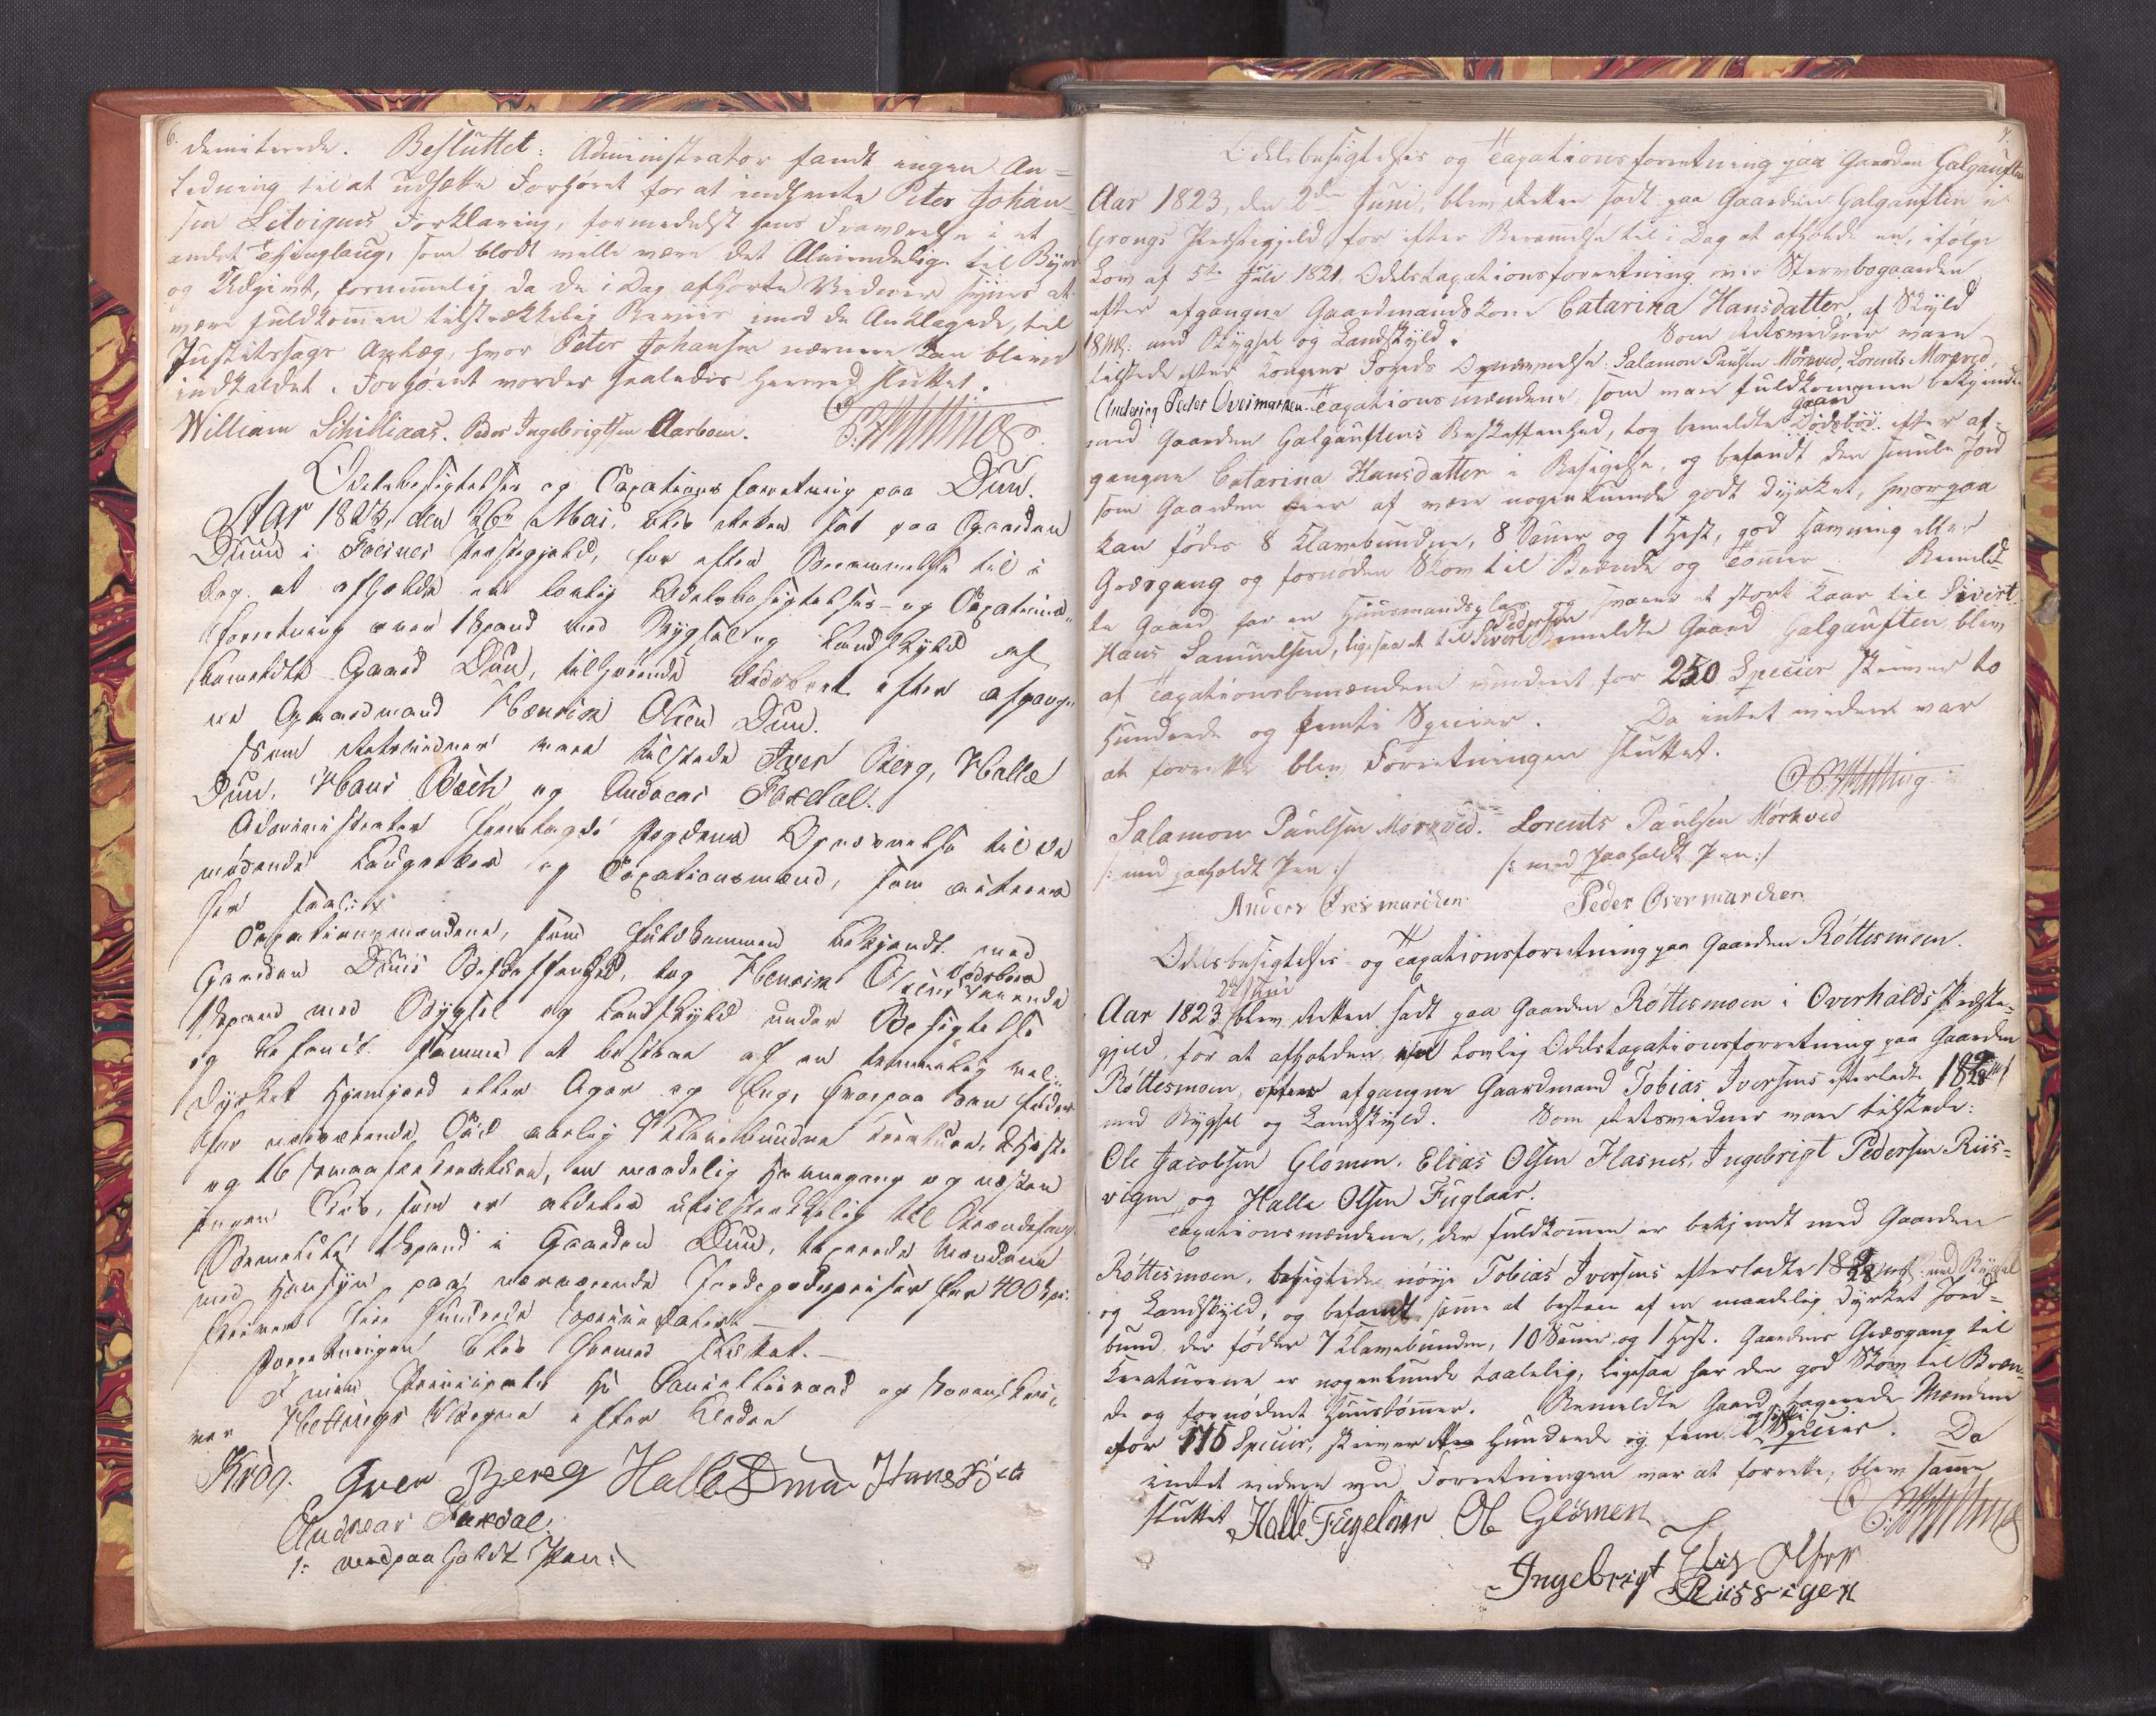 6.
demiterede. Besluttet: Administrator fandt ingen An=
ledning til at udsætte Forhøret for at indhente Peter Johan=
sen Letvigens Forklaring, formedelst hans Fraværelse i et
andet Thinglaug, som blodt wille være det Almindelige til Byrde
og Udgivt, fornemmelig da de i Dag afhørte Vidner synes at
være fuldkommen tilstrækkelig Beviis imod de Anklagede, til
Justitssags Anlæg, hvor Peter Johansen nærmere kan blive
indkaldet. Forhøret vorder saaledes hermed sluttet.
William Schilliaas. Peder Ingebrigtsen Aarboen.
Odelsbesigtelses og Taxations forretning paa Duun.
Aar 1823, den 26de Mai, blev Retten sat paa Gaarden
Duun i Foesnes Præstegjeld, for efter Berammelse til i
Dag at afholde en lovlig Odelsbesigtelses- og Taxations
forretning over 1 Spand med Bygsel og Landskyld af
bemeldte Gaard Duun, tilhørende Dødsboet efter afgang=
ne Gaardmand Henrich Olsen Duun.
Som Retsvidner vare tilstede Iver Berg, Halle
Duun, Hans Bech og Andreas Faxdal.
Administrator fremlagde Fogdens Opnævnelse til de
mødende Laugrettes og Taxationsmænd, som acteres
her saalydende
Taxationsmændene, som fuldkommen bekjendt med
Gaarden Duuns Beskaffenhed, tog Henrich Olsens Dødsboes
1 Spand med Bygsel og Landskyld under Besigtelse
og befandt samme at bestaae af en temmelig vel=
dyrket Hjemjord eller Ager og Eng, hvorpaa kan fødes
for nærværende Tid aarlig 9 Klavebundne Kreaturer, 2 Heste
og 16 Smaafækreaturer, en maadelig Havnegang og næsten
ingen Skov, som er aldeles utilstrækkelig til Brændefang
Bemeldte 1 Spand i Gaarden Duun, taxerede Mændene
med Hensyn paa nærværende Jordegodspriser for 400 Spd.
skriver fire Hundrede Speciesdaler.
Forretningen blev hermed sluttet.
I min Principals Hr Cancelliraad og Sorenskri=
ver Hettings Vægne efter Ordre
Krog. Iver Berg Halle Duun Hans Bech
Andreas Faxdal
/: med paaholdt Pen :/
7
Odelsbesigtelses og Taxationsforretning paa Gaarden Galgauften
Aar 1823, den 2den Juni, blev Retten sadt paa Gaarden Galgauften i
Grongs Præstegjeld for efter Berammelse til i Dag at afholde en, ifølge
Lov af 5te Juli 1821, Odelstaxationsforretning over Stervbogaarden
efter afgangne Gaardmandskone Catarina Hansdatter, af Skyld
18 Mk. med Bygsel og Landskyld. Som Retsvidner vare
tilstede efter Kongens Fogeds Opnævnelse: Salamon Paulsen Mörkved, Lorents Morkved,
Anders og Peder Overmarken. Taxationsmændene, som vare fuldkommen bekjendt
med Gaarden Galgauftens Beskaffenhed, tog bemeldte Dødsboe Gaard efter af=
gangne Catarina Hansdatter i Besigelse, og befandt den smule Jord
som Gaarden eier at være nogenlunde godt dyrket, hvorpaa
kan fødes 8 Klavebundne, 8 Sauer og 1 Hest, god Havning eller
Græsgang og fornøden Skov til Brænde og Tømmer. Bemeld=
te Gaard har en Huusmandsplads og svarer et stort Kaar til Sivert
Hans Samuelsen, ligesaa et til Sivert Pedersen bemeldte Gaard Galgauften blev
af Taxationsbemændene vurderet for 250 Species skriver to
Hundrede og femti Species. Da intet videre var
at forrette blev Forretningen sluttet.
Salamon Paulsen Mörkved. Lorents Paulsen Mörkved
/: med paaholdt Pen :/ /: med paaholdt Pen :/
Anders Overmarchen Peder Overmarchen
Odelsbesigtelses- og Taxationsforretning paa Gaarden Röttesmoen.
2de Juni
Aar 1823 blev Retten sadt paa Gaarden Röttesmoen i Overhalds Præste=
gjeld, for at afholden lovlig Odelstaxationsforretning paa Gaarden
Röttesmoen, efter afgangne Gaardmand Tobias Iversens efterladte
med Bygsel og Landskyld. Som Retsvidner vare tilstede:
Ole Jacobsen Glömen, Elias Olsen Flasnes, Ingebrigt Pedersen Riis=
vigen og Halle Olsen Fuglaar.
Taxationsmændene, der fuldkommen er bekjendt med Gaarden
Röttesmoen, besigtede nöye Tobias Iversens efterladte med Bygsel
og Landskyld, og befandt samme at bestaae af en maadelig dyrket Jord=
bund, der føder 7 Klavebunden, 10 Sauer og 1 Hest. Gaardens Græsgang til
Kreaturene er nogenlunde taalelig, ligesaa har den god Skov til Bræn=
de og fornødent Huustømmer. Bemeldte Gaard taxerede Mændene
for 175 Species, skriver Hundrede og fem og sytti Species. Da
intet videre ved Forretningen var at forrette, blev samme
sluttet Halle Fugelaar Ole Glömen
Elias Olsen
Ingebrigt Riisvigen